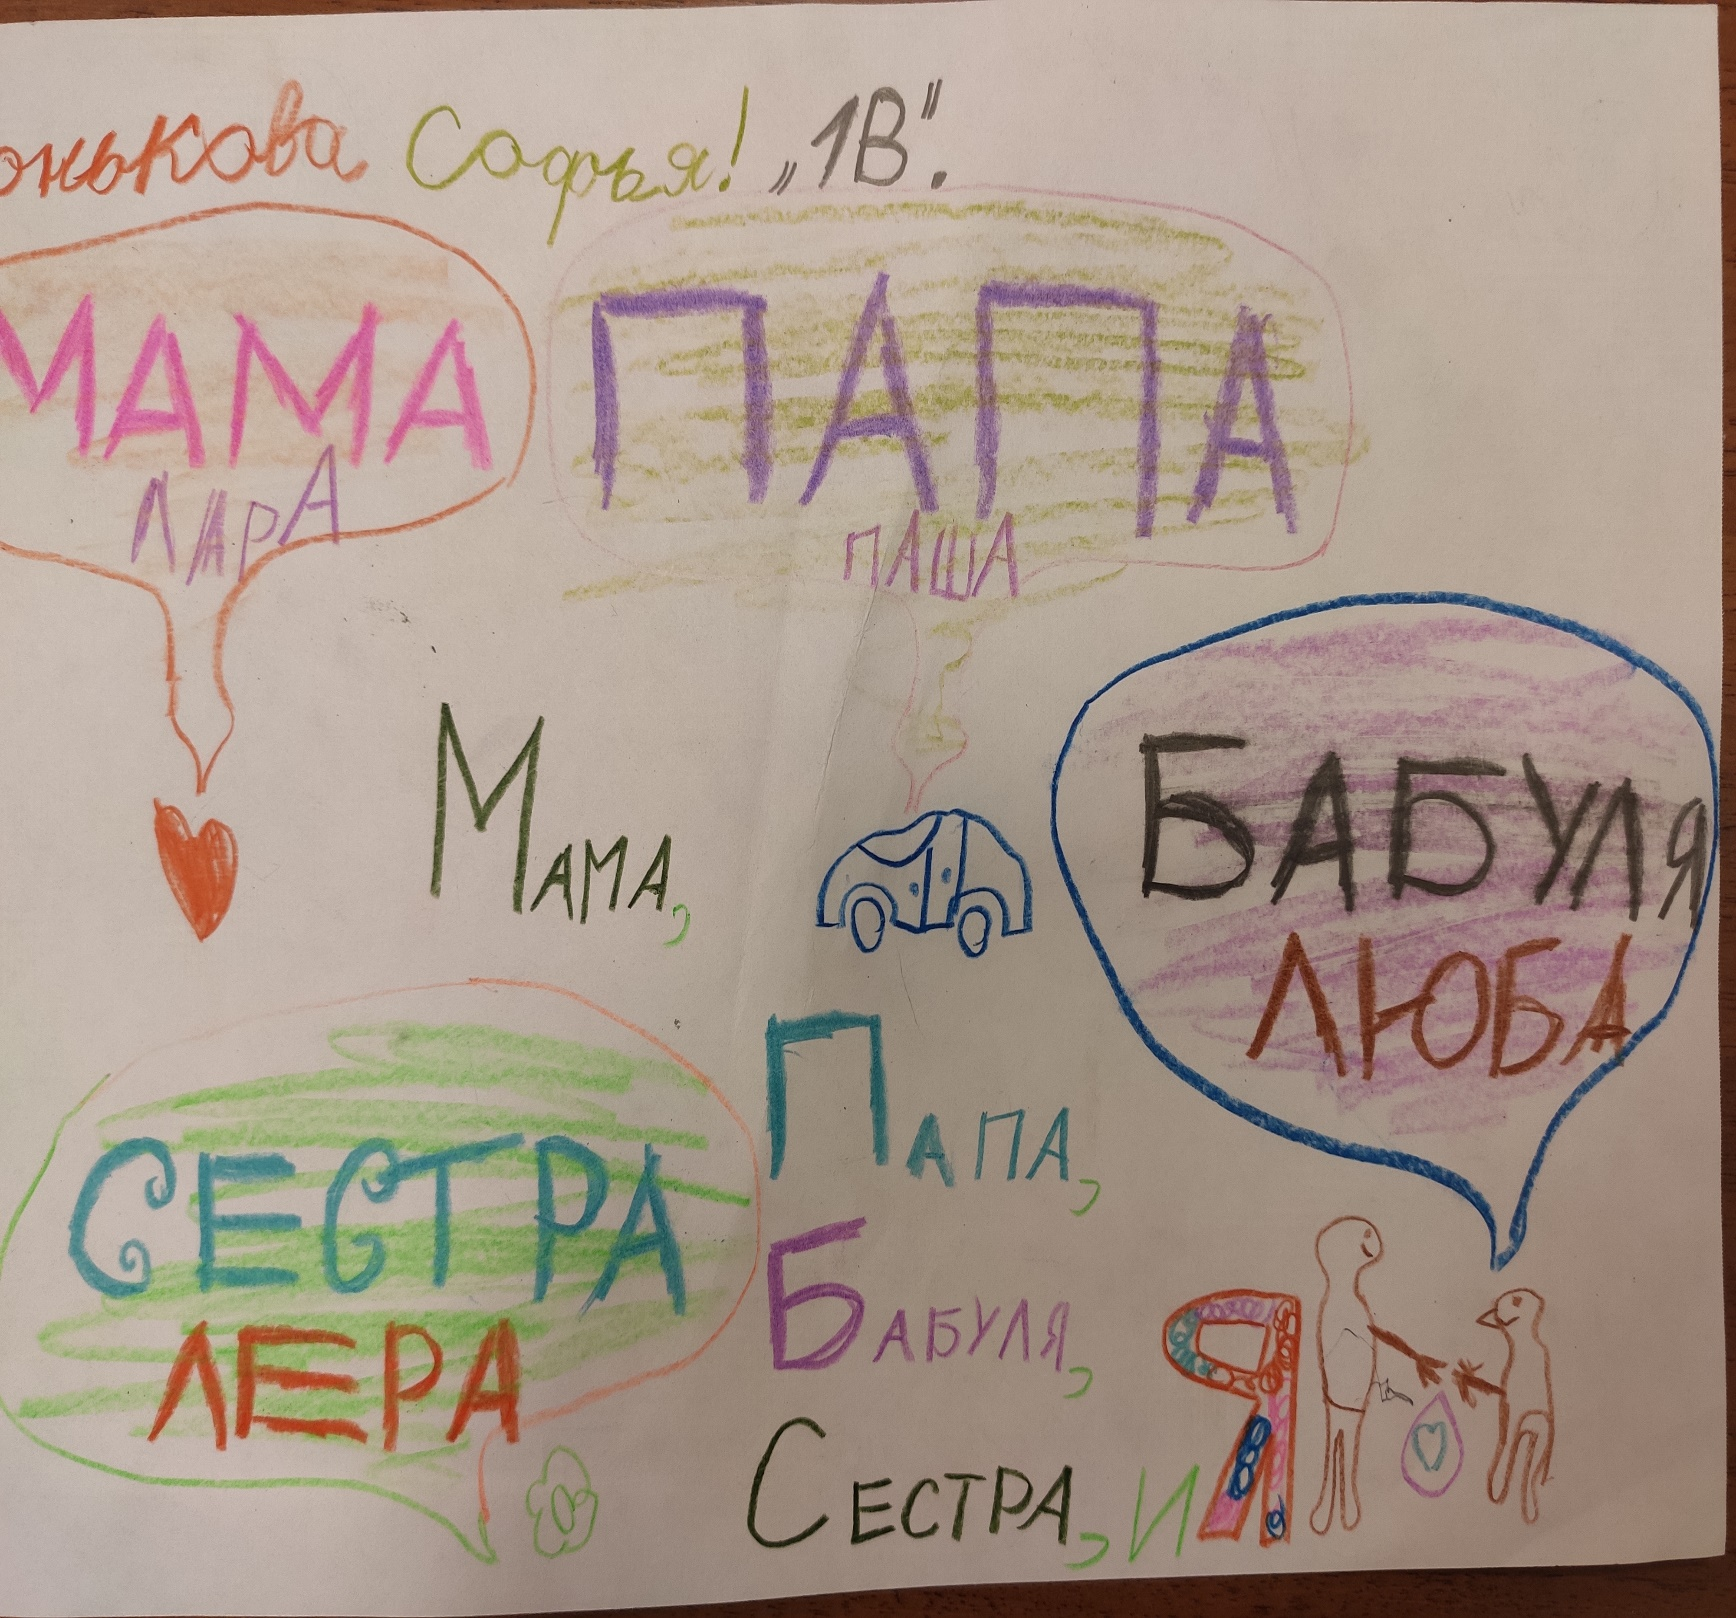 онькова Софья! „1В".
МАМА
ЛАРА
ПАПА
ПАША
Мама,
БАБУЛЯ
ЛЮБА
СЕСТРА
ЛЕРА
Папа,
Бабуля,
Сестра, и Я